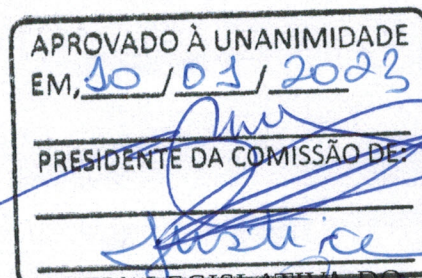 APROVADO À UNANIMIDADE
EM, 10 / 01 / 2023
PRESIDENTE DA COMISSÃO DE:
Justiça